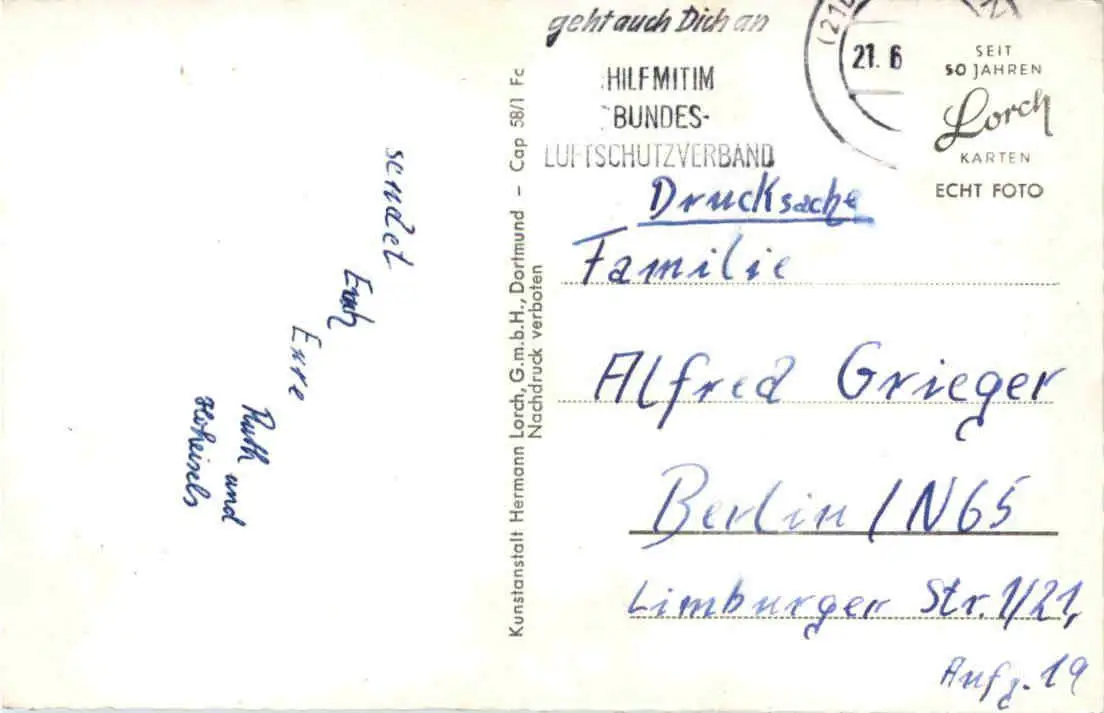 sendet
Euch
Eure
Ruth und
Hoheisels
Kunstanstalt Hermann Lorch, G.m.b.H., Dortmund – Cap 58/1 Fc
Nachdruck verboten
geht auch Dich an
HILF MIT IM
BUNDES-
LUFTSCHUTZVERBAND
21. 6
SEIT
50 JAHREN
Lorch
KARTEN
ECHT FOTO
Drucksache
Familie
Alfred Grieger
Berlin / N65
Limburger Str. 1/21,
Aufg. 19